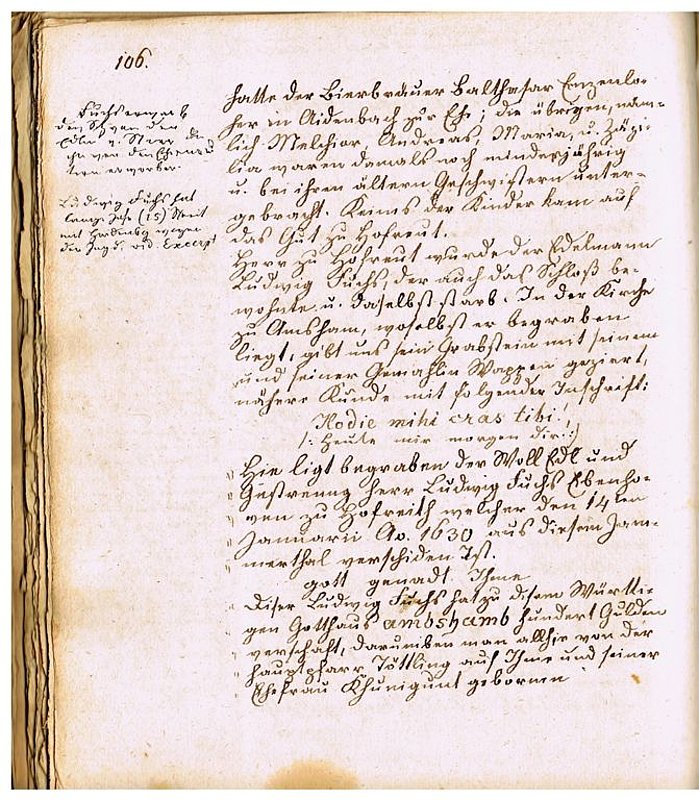 106.
Fuchs erwarb
den Sitz von den
Edlen v.
von den
tern erworben.
Ludwig Fuchs hat
lange Jahre (15) Streit
mit wegen
der Jagd. vid. Excerpt
hatte der Bierbräuer Balthasar Enzenlo-
her in Aidenbach zur Ehe; die übrigen, näm-
lich Melchior, Andreas, Maria, u. Zäzi-
lia waren damals noch minderjährig
u. bei ihren ältern Geschwistern unter-
gebracht. Keins der Kinder kam auf
das Gut zu Hofreut.
Herr zu Hofreut wurde der Edelmann
Ludwig Fuchs, der auch das Schloß be-
wohnte u. daselbst starb. In der Kirche
zu Amsham, woselbst er begraben
liegt, gibt uns sein Grabstein mit seinem
und seiner Gemahlin Wappen geziert,
nähere Kunde mit folgender Inschrift:
Hodie mihi cras tibi!,
/: Heute mir morgen dir :/
„ Hie ligt begraben der Woll Edl und
„ Gestreng Herr Ludwig Fuchs Ebenho-
„ ven zu Hofreith welcher den 14ten
„ Januarii Ao. 1630 aus diesem Jam-
„ merthal verschiden Ist.
gott genadt Ihme
„ Diser Ludwig Fuchs hat zu disem Württi-
„ gen Gotthaus ambshamb hundert Gulden
„ verschafft, darumben man allhie von der
„ hauptpfarr Töttling auf Ihme und seiner
„ Ehefrau Khunigunt gebornen